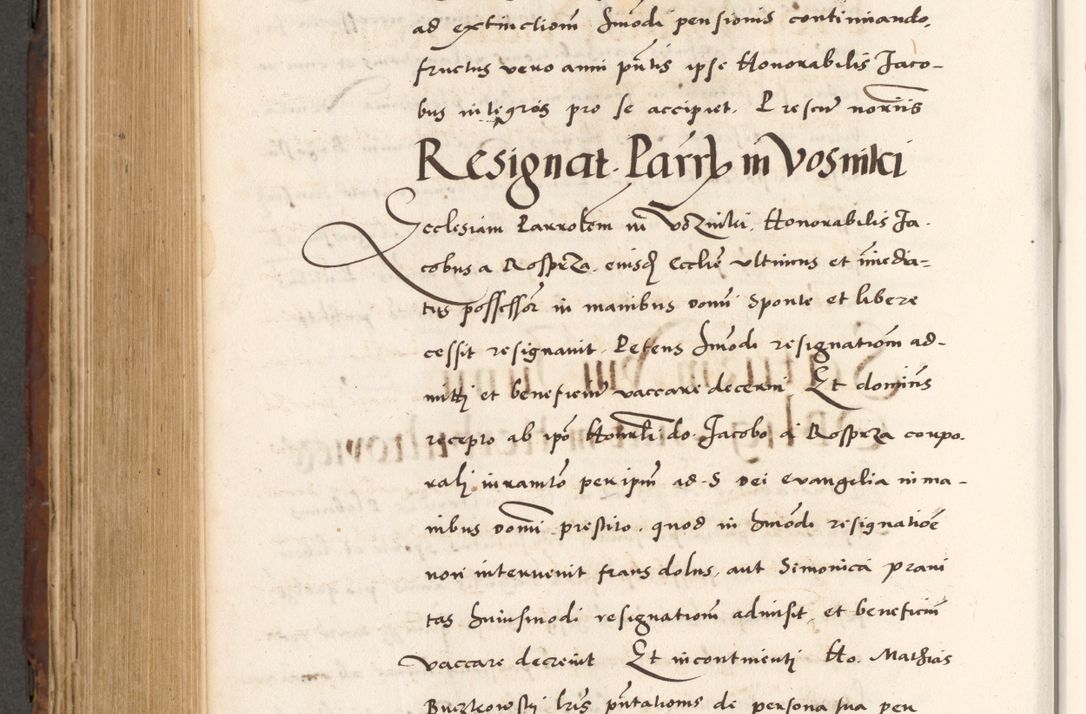 ad extinctiom hmodi pensionis continuando,
fructus vero anni pntis ipse Honorabilis Jaco-
bus integros pro se accipiet. Prescn nornis
Resignat. Parrh in Vosniki
Ecclesiam Parrohem in Vozniki, Honorabilis Ja.
cobus a Rosprza. eiusd Ecclie vltimus et imedia=
tus possessor in manibus domi sponte et libere
cessit resignauit. Petens hmodi resignatiom ad-
mitti et beneficium vaccare decerni Et dominus
recepto ab ipo Honrli do. Jacobo a Rosprza corpo.
rali iuramto per ipm ad S dei euangelia in ma-
nibus domi prestito, quod in hmodi resignatioe
non interuenit fraus dolus, aut Simonica praui
tas huiusmodi resignatiom admisit, et beneficium
vaccare decreuit Et incontinenti Ho. Mathias
lris pntatioms de persona sua per